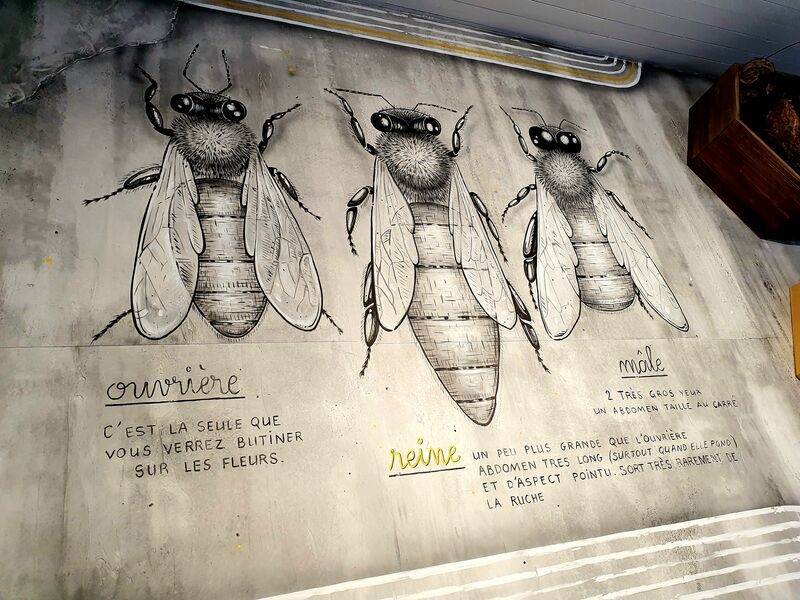 ouvrière
C'EST LA SEULE QUE
VOUS VERREZ BUTINER
SUR LES FLEURS.
reine
UN PEU PLUS GRANDE QUE L'OUVRIÈRE
ABDOMEN TRES LONG (SURTOUT QUAND ELLE POND)
ET D'ASPECT POINTU. SORT TRÈS RAREMENT DE
LA RUCHE
mâle
2 TRÈS GROS YEUX
UN ABDOMEN TAILLÉ AU CARRÉ